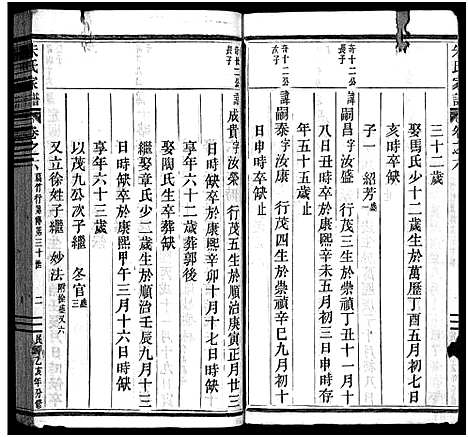 朱氏家譜 卷之六
三十二歲
娶馬氏少十二歲生於萬歷丁酉五月初七日
亥時卒缺
子一 紹芳
奇十二公長子
諱嗣昌字汝盛 行茂三生於崇禎丁丑十一月十
八日丑時卒於康熙辛未五月初三日申時存
年五十五歲止
奇十二公次子
諱嗣泰字汝康 行茂四生於崇禎辛巳九月初十
日申時卒缺
諱成貴字汝榮 行茂五生於順治庚寅正月廿三
日時缺卒於康熙辛卯十月十七日時缺
享年六十二歲葬郭後
娶陶氏生卒葬缺
繼娶章氏少二歲生於順治壬辰九月十三
日時缺卒於康熙甲午三月十六日時缺
享年六十三歲
以茂九公次子繼 冬官
又立徐姓子繼 妙法
朱氏家譜 卷之六
二
民國乙亥年分修